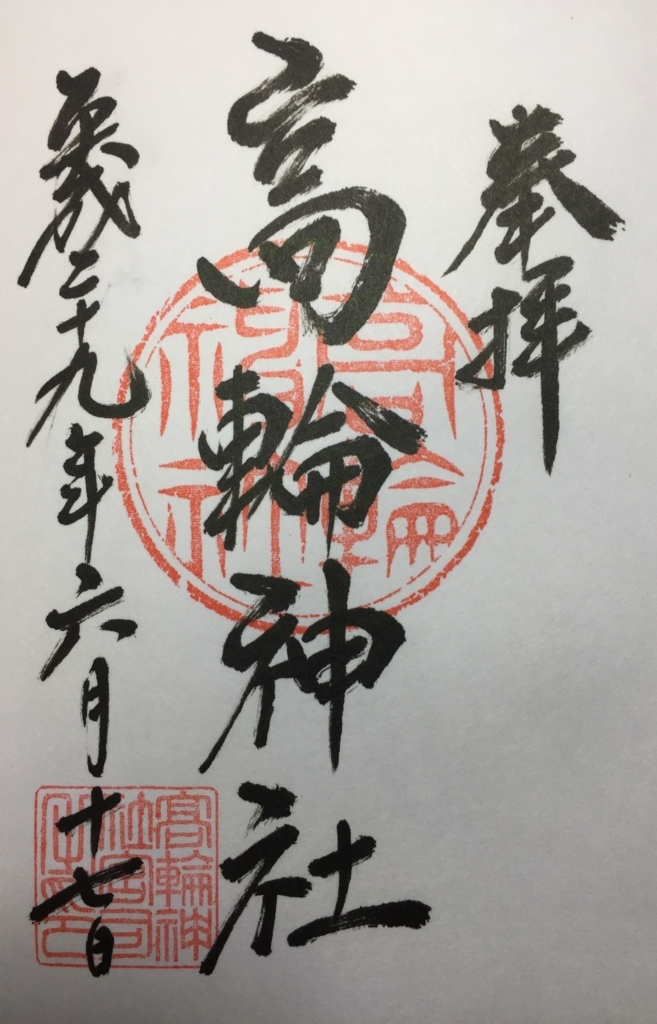 奉拝
高輪神社
平成二十九年六月十七日
高輪
神社
高輪神
社宮司
之印